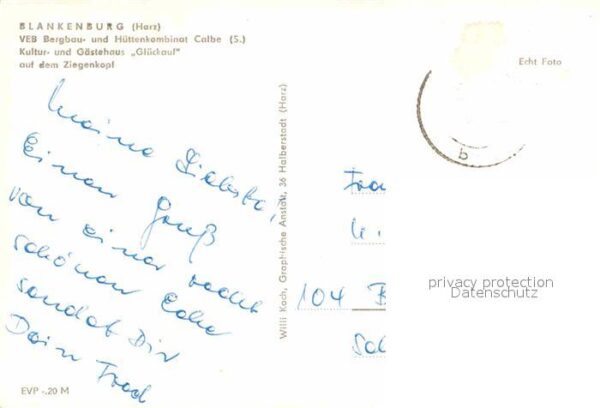 BLANKENBURG (Harz)
VEB Bergbau- und Hüttenkombinat Calbe (S.)
Kultur- und Gästehaus „Glückauf"
auf dem Ziegenkopf
Meine Liebste,
Einen Gruß
von einer recht
schönen Ecke
sendet Dir
Dein Fred
EVP -.20 M
Willi Koch, Graphische Anstalt, 36 Halberstadt (Harz)
Echt Foto
b
Frau
104 B
privacy protection
Datenschutz